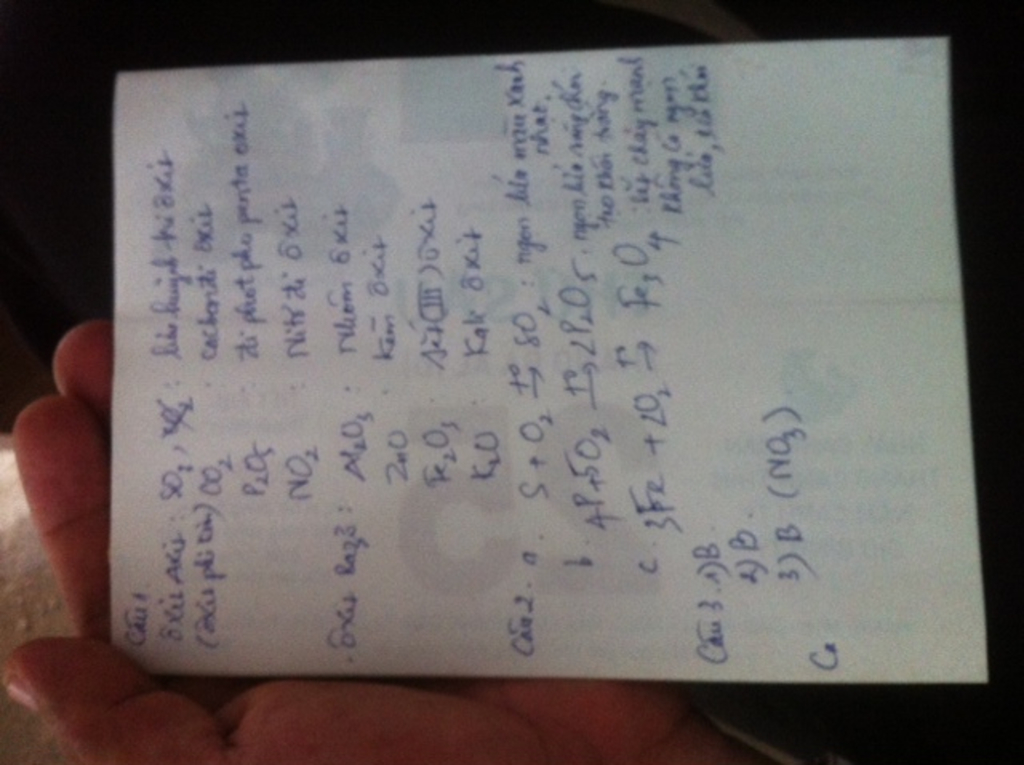 Câu 1
ôxit axit: SO2, : lưu huỳnh tri ôxit
(ôxit phi kim) CO2 : cacbon đi ôxit
P2O5 : đi phot pho penta oxit
NO2 : Nitơ đi ôxit
. ôxit bazơ : Al2O3 : Nhôm ôxit
ZnO : kẽm ôxit
Fe2O3 : sắt (III) ôxit
K2O : Kali ôxit
Câu 2. a. S + O2 t° → SO2 : ngọn lửa màu xanh
nhạt.
b. 4P + 5O2 t° → 2P2O5 : ngọn lửa sáng chói
tạo khói trắng.
c. 3Fe + 2O2 t° → Fe3O4 : sắt cháy mạnh
không có ngọn
lửa, khói
Câu 3. 1) B
2) B.
3) B (NO3)